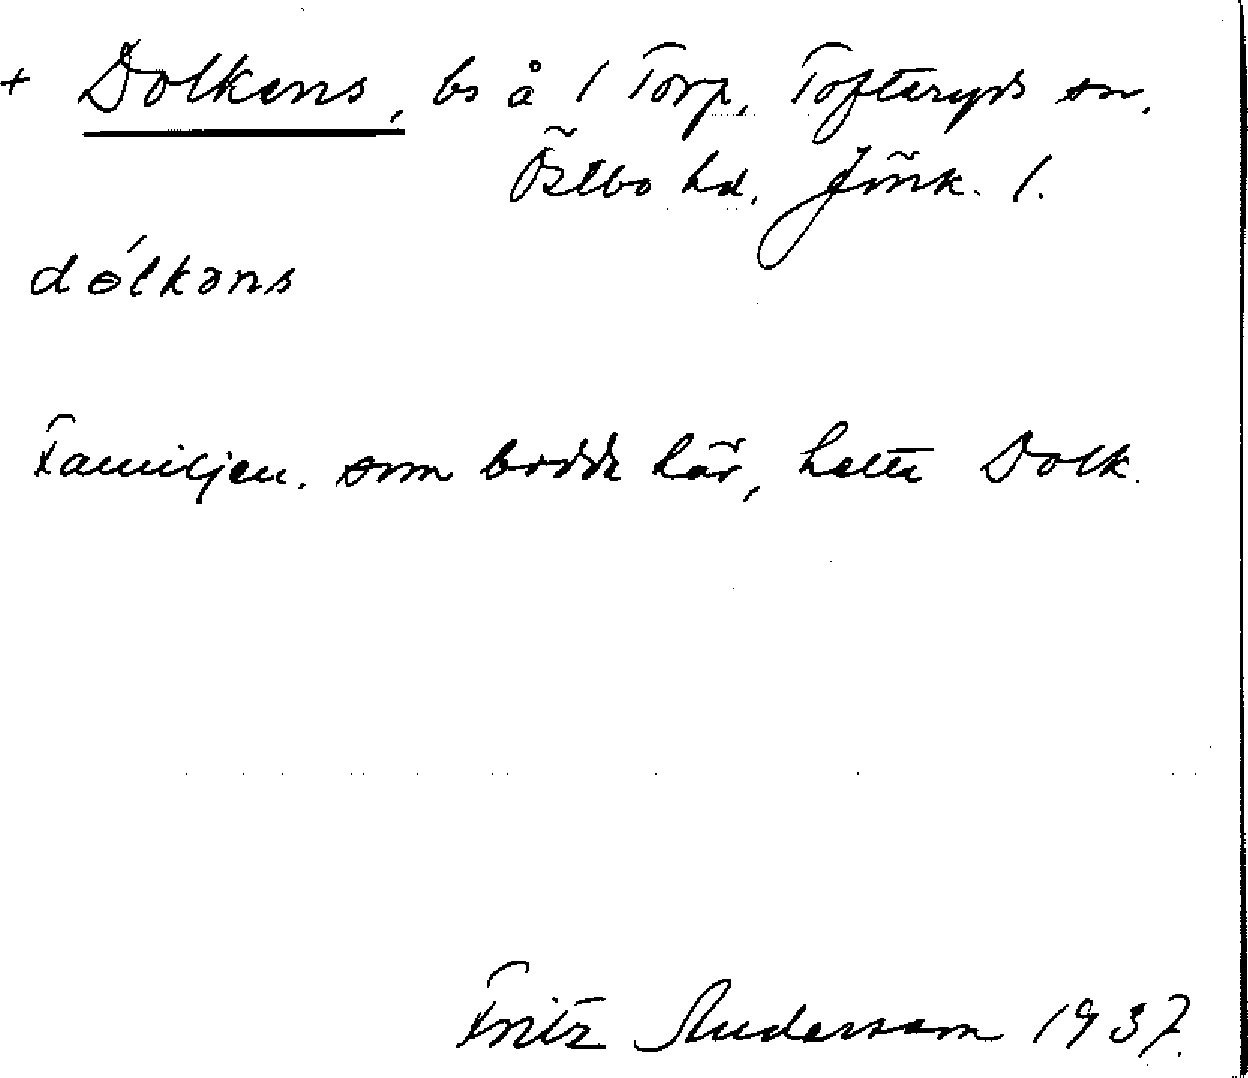 + Dolkens, bs å 1 Torp, Tofteryds sn,
Östbo hd, Jönk. l.
dólkəns
Familjen, som bodde här, hette Dolk.
Fritz Andersson 1937.